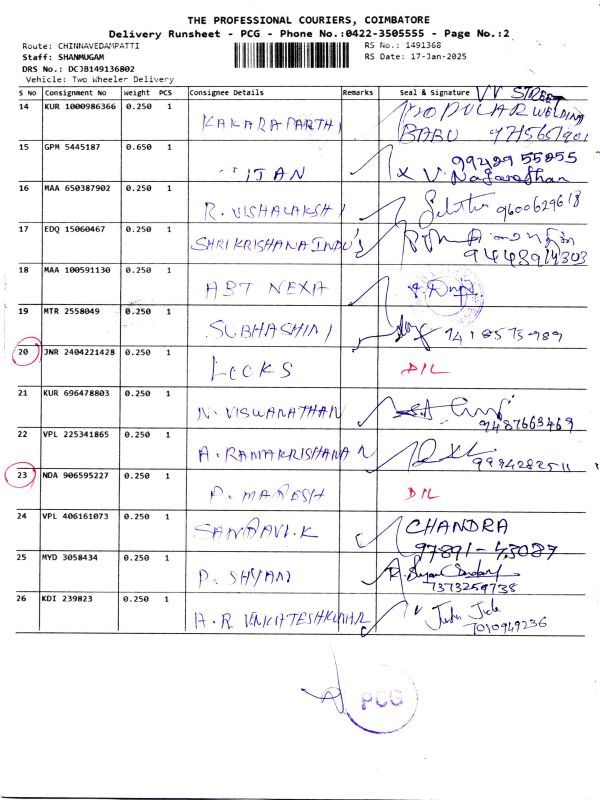 THE PROFESSIONAL COURIERS, COIMBATORE
Delivery Runsheet - PCG - Phone No.:0422-3505555 - Page No.:2
Route: CHINNAVEDAMPATTI
RS No.: 1491368
Staff: SHANMUGAM
RS Date: 17-Jan-2025
DRS No.: DCJB149136802
Vehicle: Two Wheeler Delivery
S No Consignment No Weight PCS Consignee Details Remarks Seal & Signature VV STREET
14 KUR 1000986366 0.250 1 KAKARAPARTHI POPULAR WELDING
BABU 9715651901
15 GPM 5445187 0.650 1 TITAN 99429 55855
V. Nagarathan
16 MAA 650387902 0.250 1 R. VISHALAKSHI 9600629618
17 EDQ 15060467 0.250 1 SHRIKRISHANA INDU'S
9448914303
18 MAA 100591130 0.250 1 ABT NEXA
19 MTR 2558049 0.250 1 SUBHASHINI 9418575989
20 JNR 2404221428 0.250 1 LOCKS D/L
21 KUR 696478803 0.250 1 N. VISWANATHAN
9487663469
22 VPL 225341865 0.250 1 A. RAMAKRISHANAN 9994282511
23 NDA 906595227 0.250 1 P. MAHESH D/L
24 VPL 406161073 0.250 1 SANDAVI.K CHANDRA
97891-43087
25 MYD 3058434 0.250 1 P. SHYAM
7373259738
26 KDI 239823 0.250 1 A.R VENKATESHKUMAR
7010949236
PCG